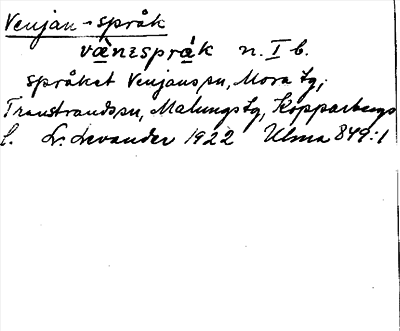 Venjan-språk
vànsspråk n. I b.
språket Venjans sn, Mora tg,
Transtrands sn, Malungs tg, Kopparbergs
l. L. Levander 1922 Ulma 849:1